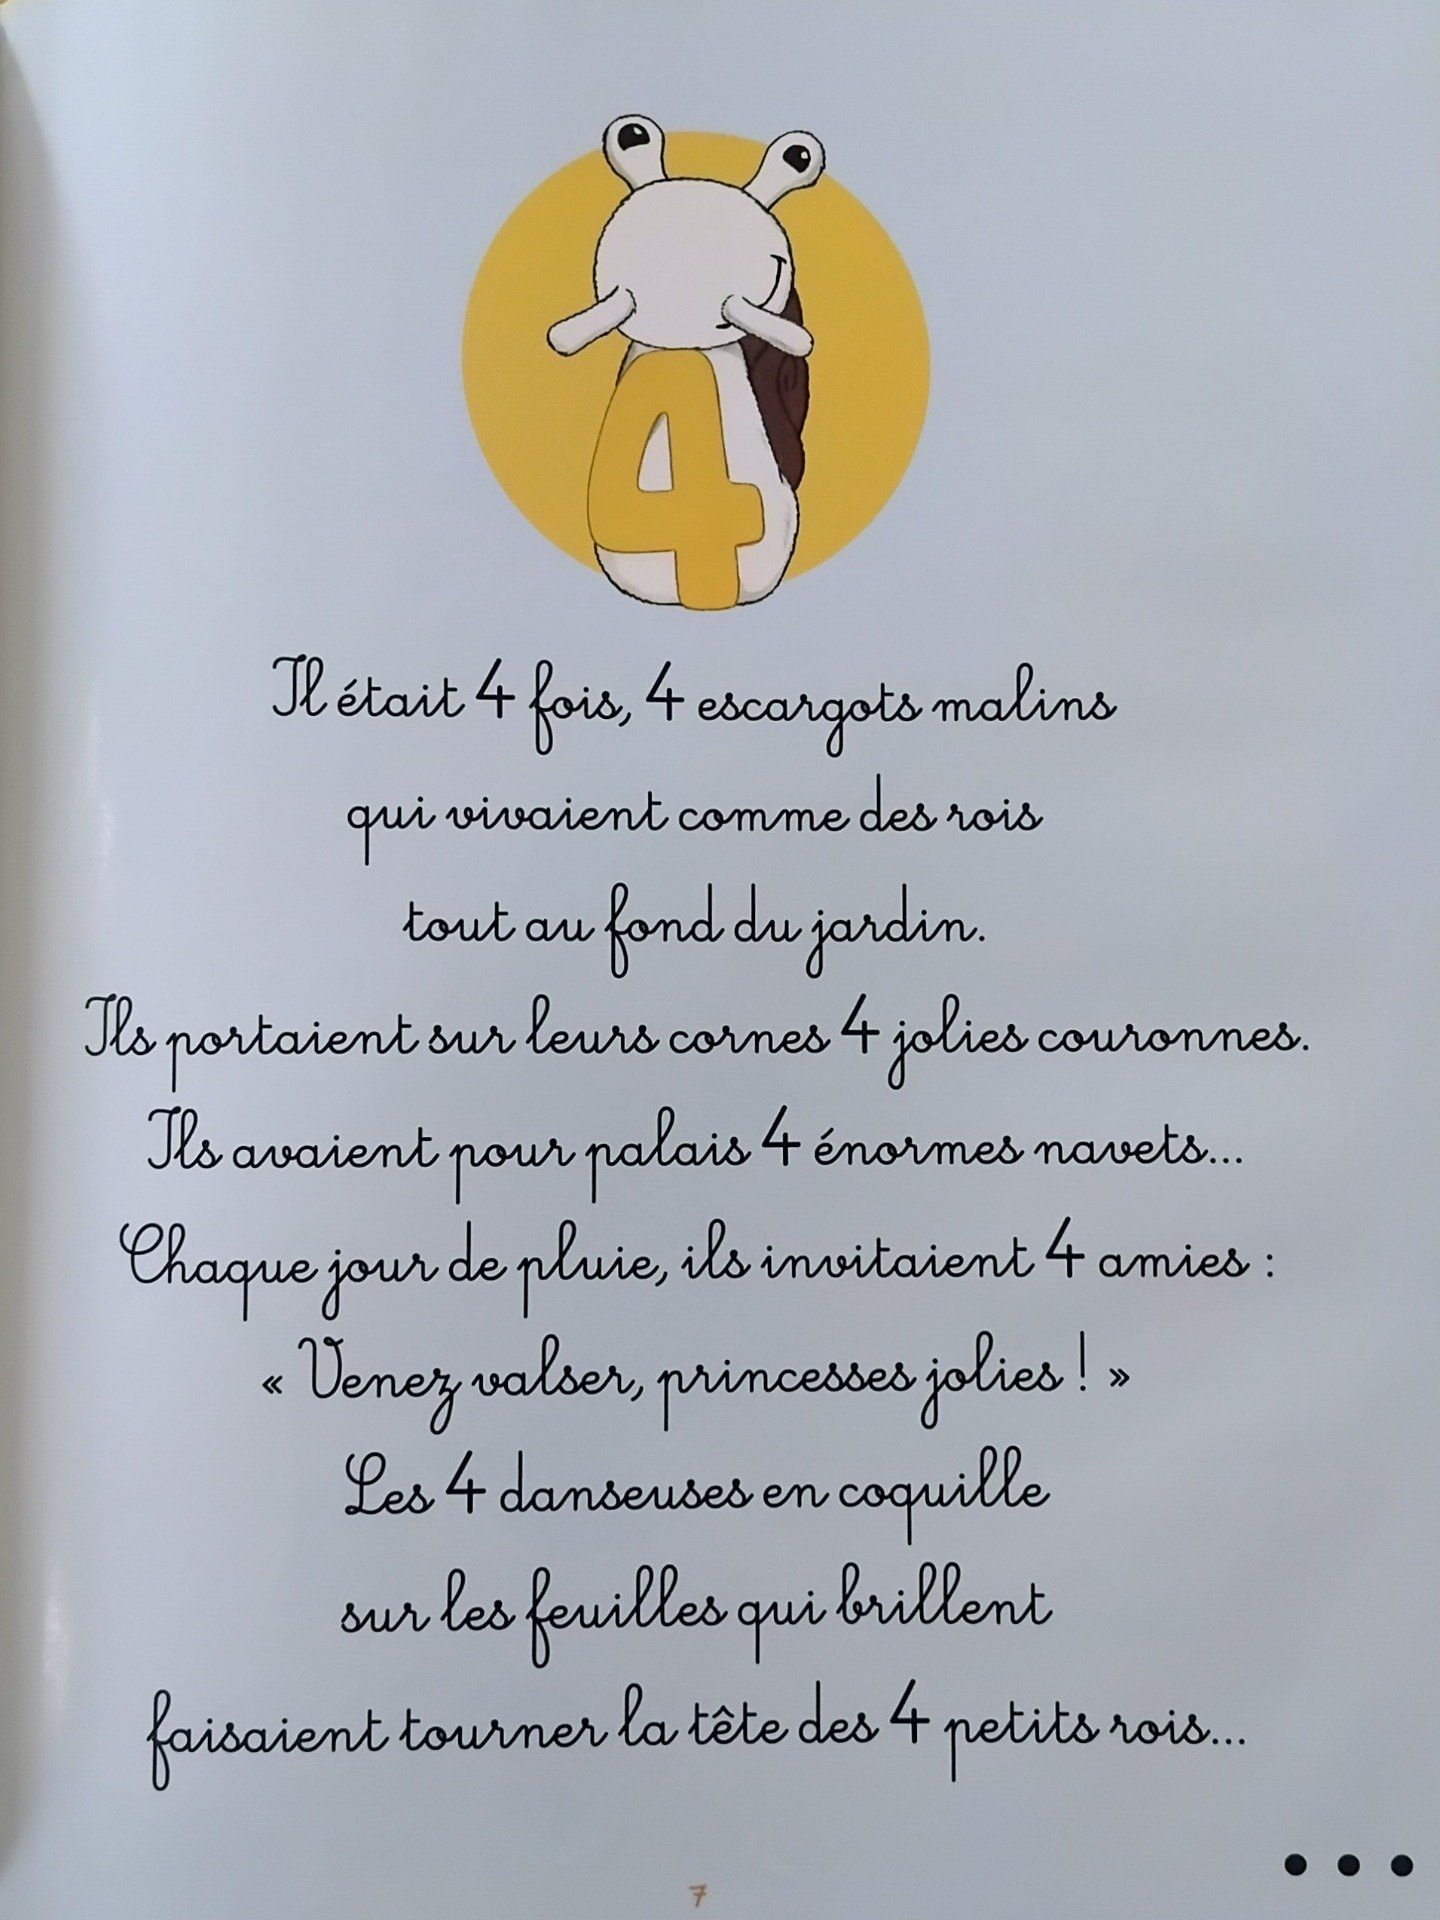 4
Il était 4 fois, 4 escargots malins
qui vivaient comme des rois
tout au fond du jardin.
Ils portaient sur leurs cornes 4 jolies couronnes.
Ils avaient pour palais 4 énormes navets...
Chaque jour de pluie, ils invitaient 4 amies :
« Venez valser, princesses jolies ! »
Les 4 danseuses en coquille
sur les feuilles qui brillent
faisaient tourner la tête des 4 petits rois...
• • •
7